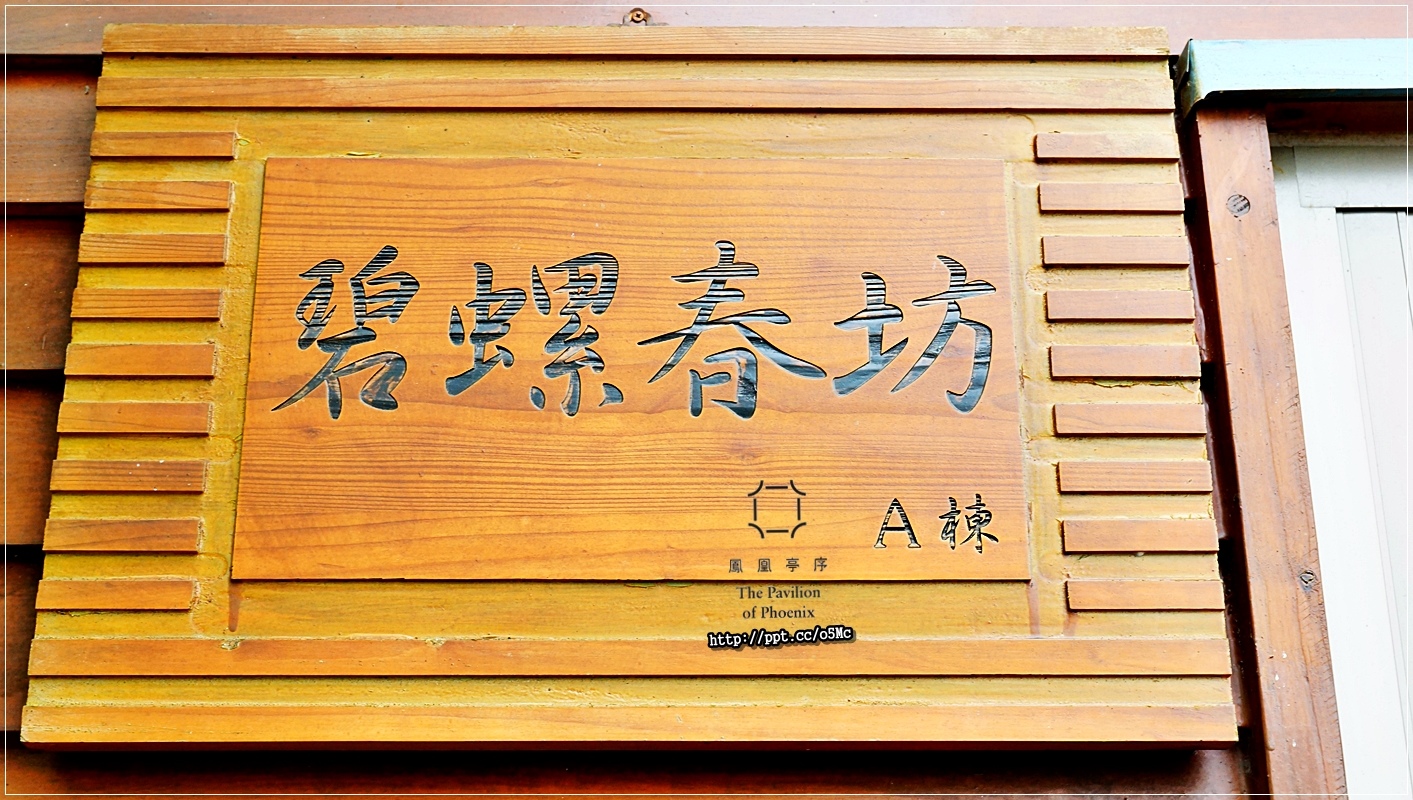 碧螺春坊
A棟
鳳凰亭序
The Pavilion
of Phoenix
http://ppt.cc/o5Mc